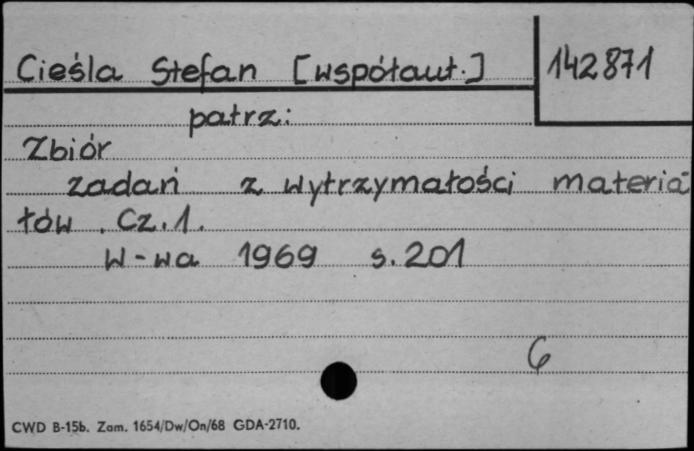 Cieśla Stefan [współaut.] 142871
patrz:
Zbiór
zadań z wytrzymałości materia
łów. Cz. 1.
W-wa 1969 s. 201
6
CWD B-15b. Zam. 1654/Dw/On/68 GDA-2710.